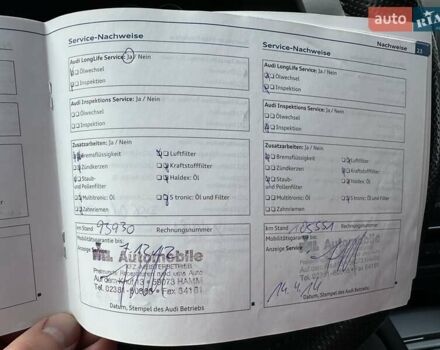 auto RIA
Service-Nachweise
Audi LongLife Service: Ja / Nein
Ölwechsel
Inspektion
Audi Inspektions Service: Ja / Nein
Ölwechsel
Inspektion
Zusatzarbeiten: Ja / Nein
Bremsflüssigkeit
Luftfilter
Zündkerzen
Kraftstofffilter
Staub-
und Pollenfilter
Haldex: Öl
Multitronic: Öl
S tronic: Öl und Filter
Zahnriemen
km Stand 95930 Rechnungsnummer
Mobilitätsgarantie bis:
Anzeige Service:
Automobile
KFZ-MEISTERBETRIEB
59073 HAMM
Tel. 02381
Datum, Stempel des Audi Betriebs
Service-Nachweise
Nachweise 23
Audi LongLife Service: Ja / Nein
Ölwechsel
Inspektion
Audi Inspektions Service: Ja / Nein
Ölwechsel
Inspektion
Zusatzarbeiten: Ja / Nein
Bremsflüssigkeit
Luftfilter
Zündkerzen
Kraftstofffilter
Staub-
und Pollenfilter
Haldex: Öl
Multitronic: Öl
S tronic: Öl und Filter
Zahnriemen
km Stand 105551 Rechnungsnummer
Mobilitätsgarantie bis:
Anzeige Service:
14.4.14
Datum, Stempel des Audi Betriebs